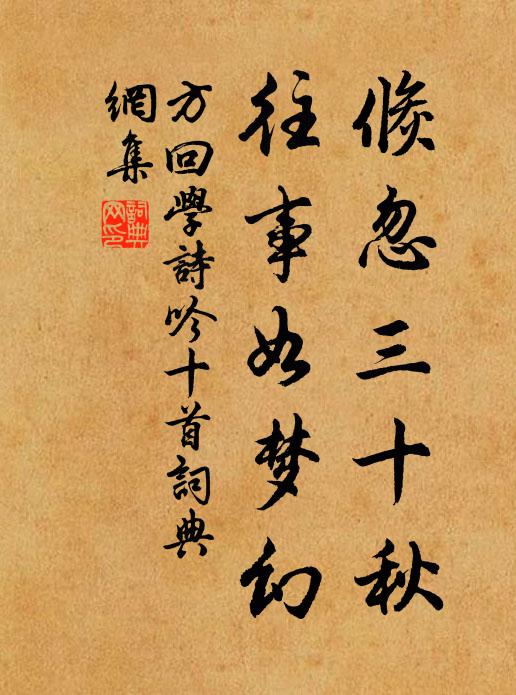 倏忽三十秋
往事如梦幻
方回學詩吟十首詞典
網集
詞典网印